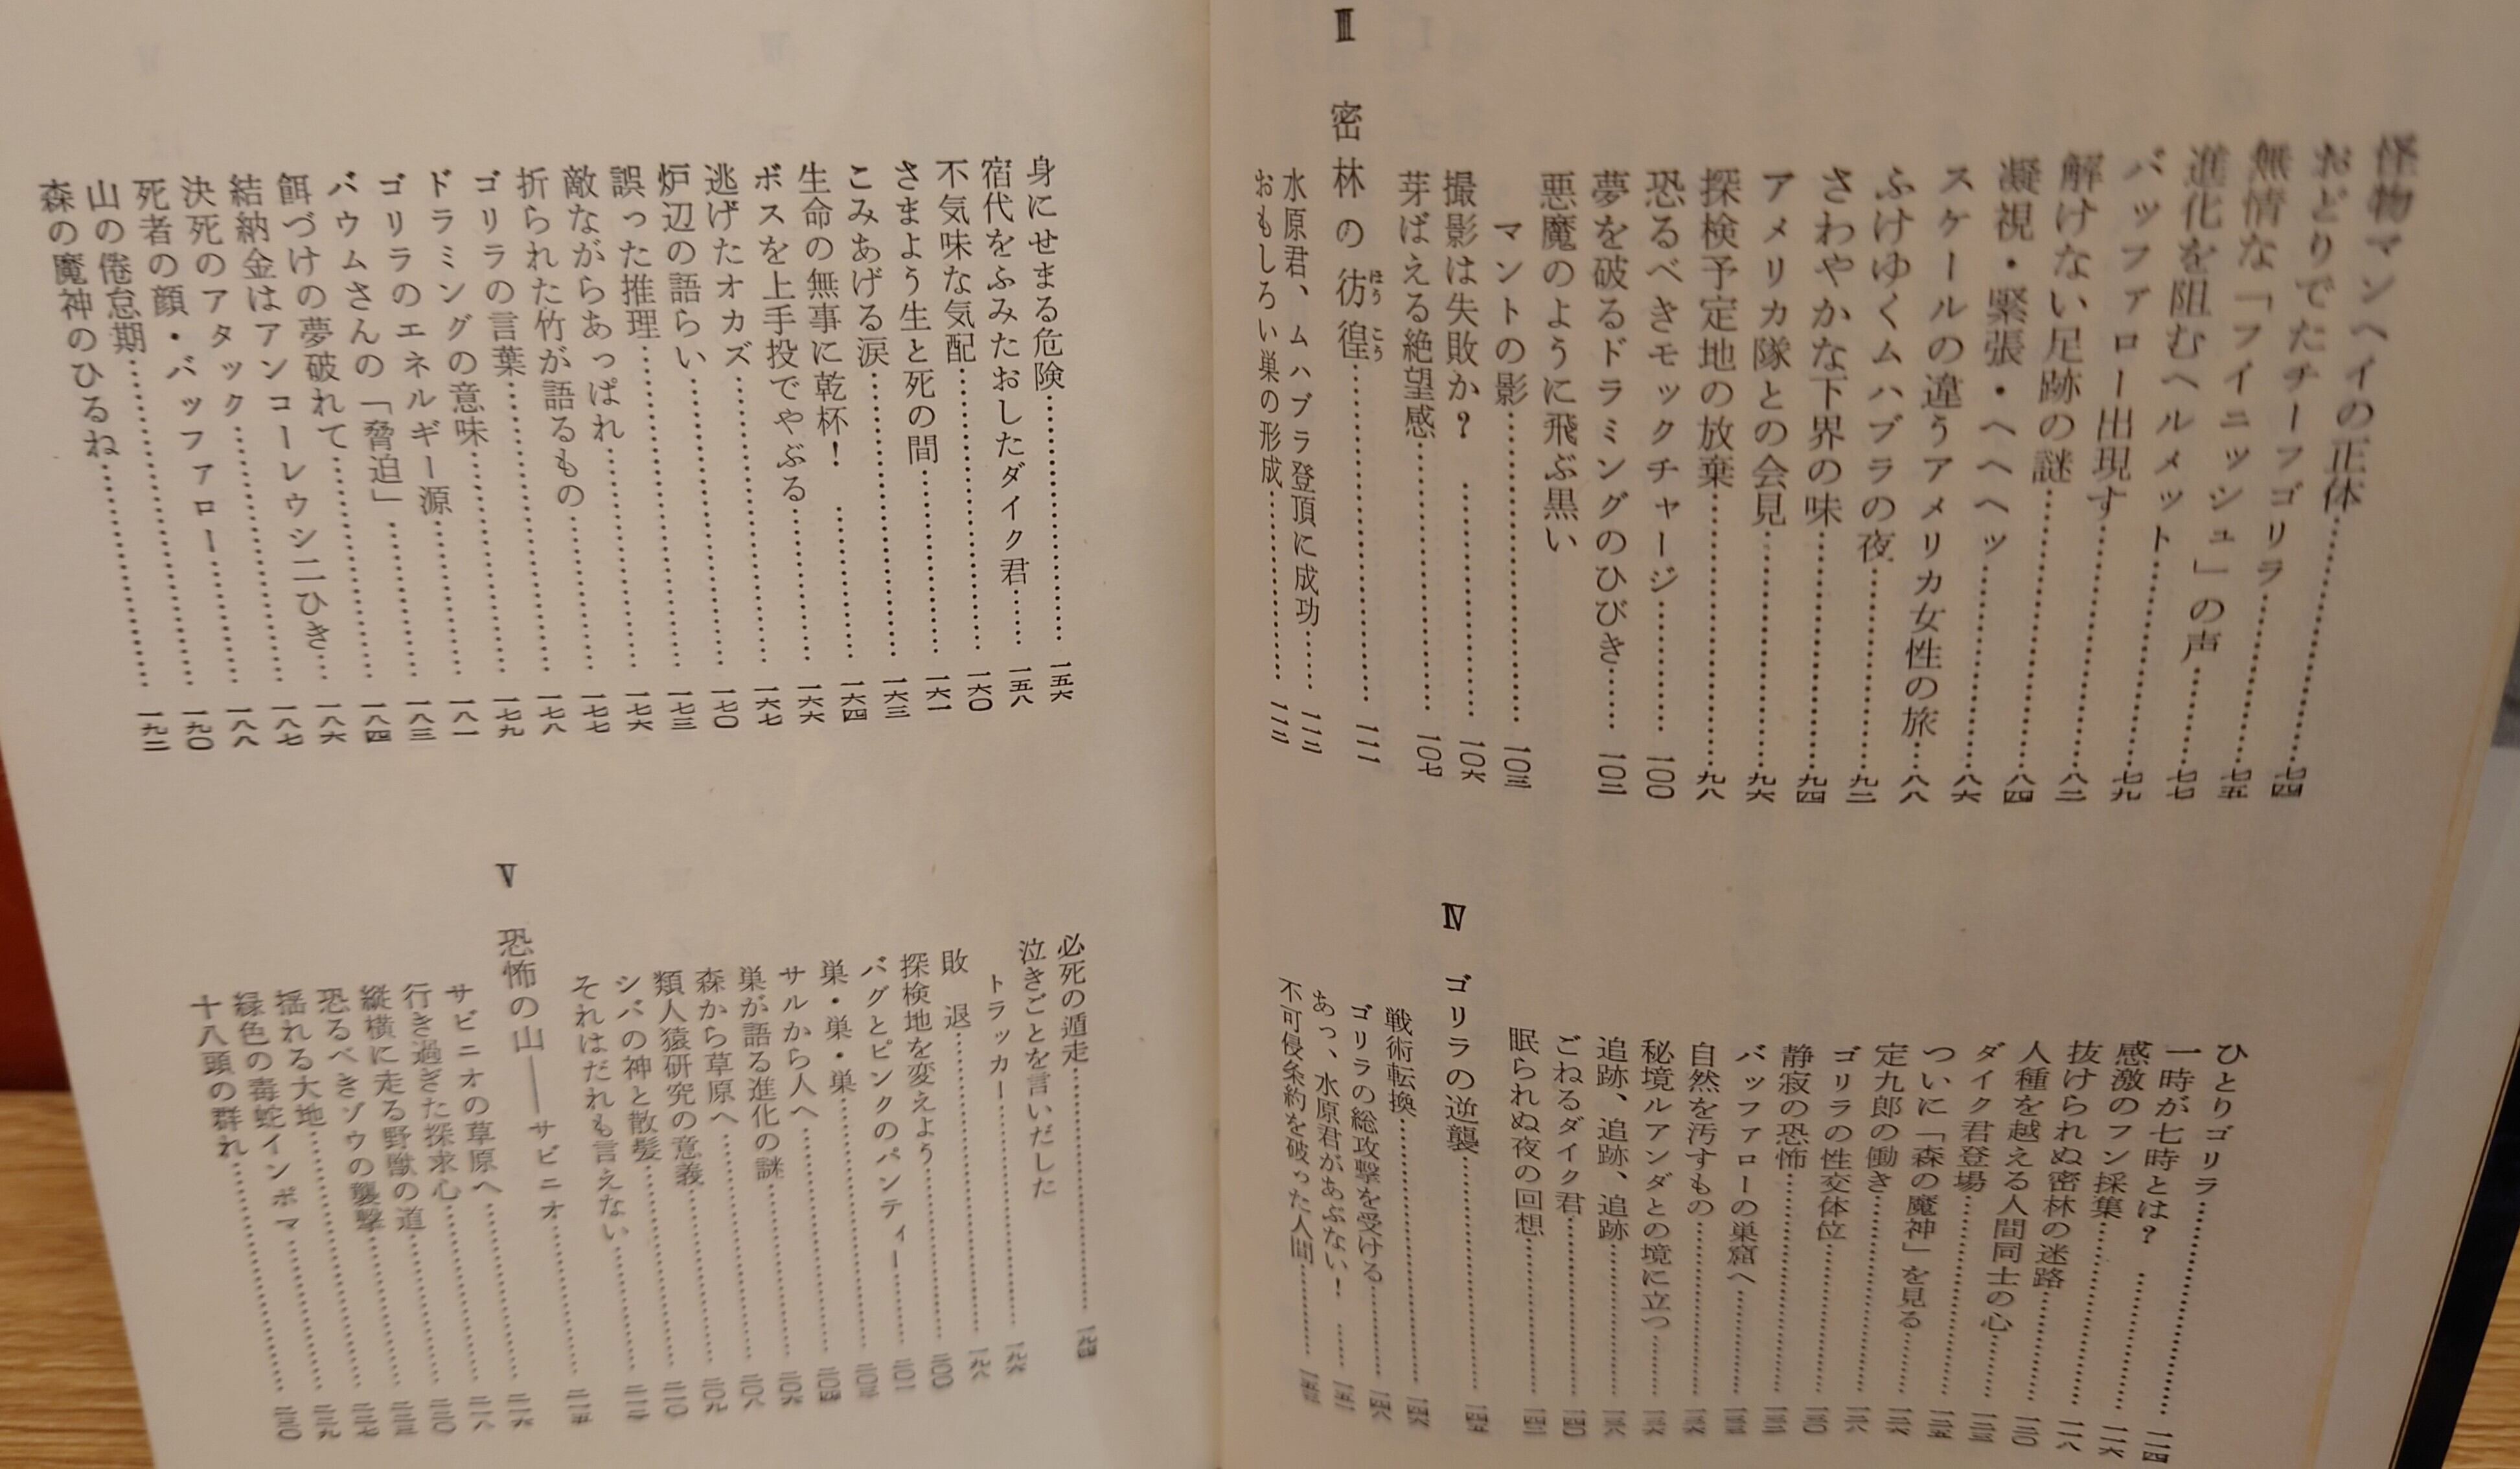 怪物マンヘイの正体……七四
おどりでたチーフゴリラ……七五
無情な「フィニッシュ」の声……七七
進化を阻むヘルメット……七九
バッファロー出現す……八二
解けない足跡の謎……八四
凝視・緊張・ヘヘヘヘッ……八六
スケールの違うアメリカ女性の旅……八八
ふけゆくムハブラの夜……九二
さわやかな下界の味……九四
アメリカ隊との会見……九六
探検予定地の放棄……九八
恐るべきモックチャージ……一〇〇
夢を破るドラミングのひびき……一〇二
悪魔のように飛ぶ黒い
マントの影……一〇三
撮影は失敗か?……一〇六
芽ばえる絶望感……一〇七
Ⅲ 密林の彷徨……一一一
ほうこう
水原君、ムハブラ登頂に成功……一一二
おもしろい巣の形成……一一三
ひとりゴリラ……一一四
一時が七時とは?……一一六
感激のフン採集……一一八
抜けられぬ密林の迷路……一二〇
人種を越える人間同士の心……
ダイク君登場……
ついに「森の魔神」を見る……
定九郎の働き……
ゴリラの性交体位……
静寂の恐怖……
バッファローの巣窟へ……
自然を汚すもの……
秘境ルアンダとの境に立つ……
追跡、追跡、追跡……
ごねるダイク君……一四〇
眠られぬ夜の回想……
Ⅳ ゴリラの逆襲……
戦術転換……
ゴリラの総攻撃を受ける……
あっ、水原君があぶない!……
不可侵条約を破った人間……
身にせまる危険……一五六
宿代をふみたおしたダイク君……一五八
不気味な気配……一六〇
さまよう生と死の間……一六一
こみあげる涙……一六三
生命の無事に乾杯!……一六四
ボスを上手投でやぶる……一六六
逃げたオカズ……一六七
炉辺の語らい……一七〇
誤った推理……一七三
敵ながらあっぱれ……一七六
折られた竹が語るもの……一七七
ゴリラの言葉……一七八
ドラミングの意味……一七九
ゴリラのエネルギー源……一八一
バウムさんの「脅迫」……一八三
餌づけの夢破れて……一八四
結納金はアンコーレウシ二ひき……一八六
決死のアタック……一八七
死者の顔・バッファロー……一八八
山の倦怠期……一九〇
森の魔神のひるね……一九二
必死の遁走……一九四
泣きごとを言いだした
トラッカー……一九六
敗退……一九八
探検地を変えよう……二〇〇
バグとピンクのパンティー……二〇一
巣・巣・巣……二〇三
サルから人へ……二〇四
巣が語る進化の謎……二〇六
森から草原へ……二〇八
類人猿研究の意義……二〇九
シバの神と散髪……二一〇
それはだれも言えない……
Ⅴ 恐怖の山――サビニオ……二一五
サビニオの草原へ……二一六
行き過ぎた探求心……二一八
縦横に走る野獣の道……二二〇
恐るべきゾウの襲撃……
揺れる大地……二二七
緑色の毒蛇インボマ……二二九
十八頭の群れ……二三〇